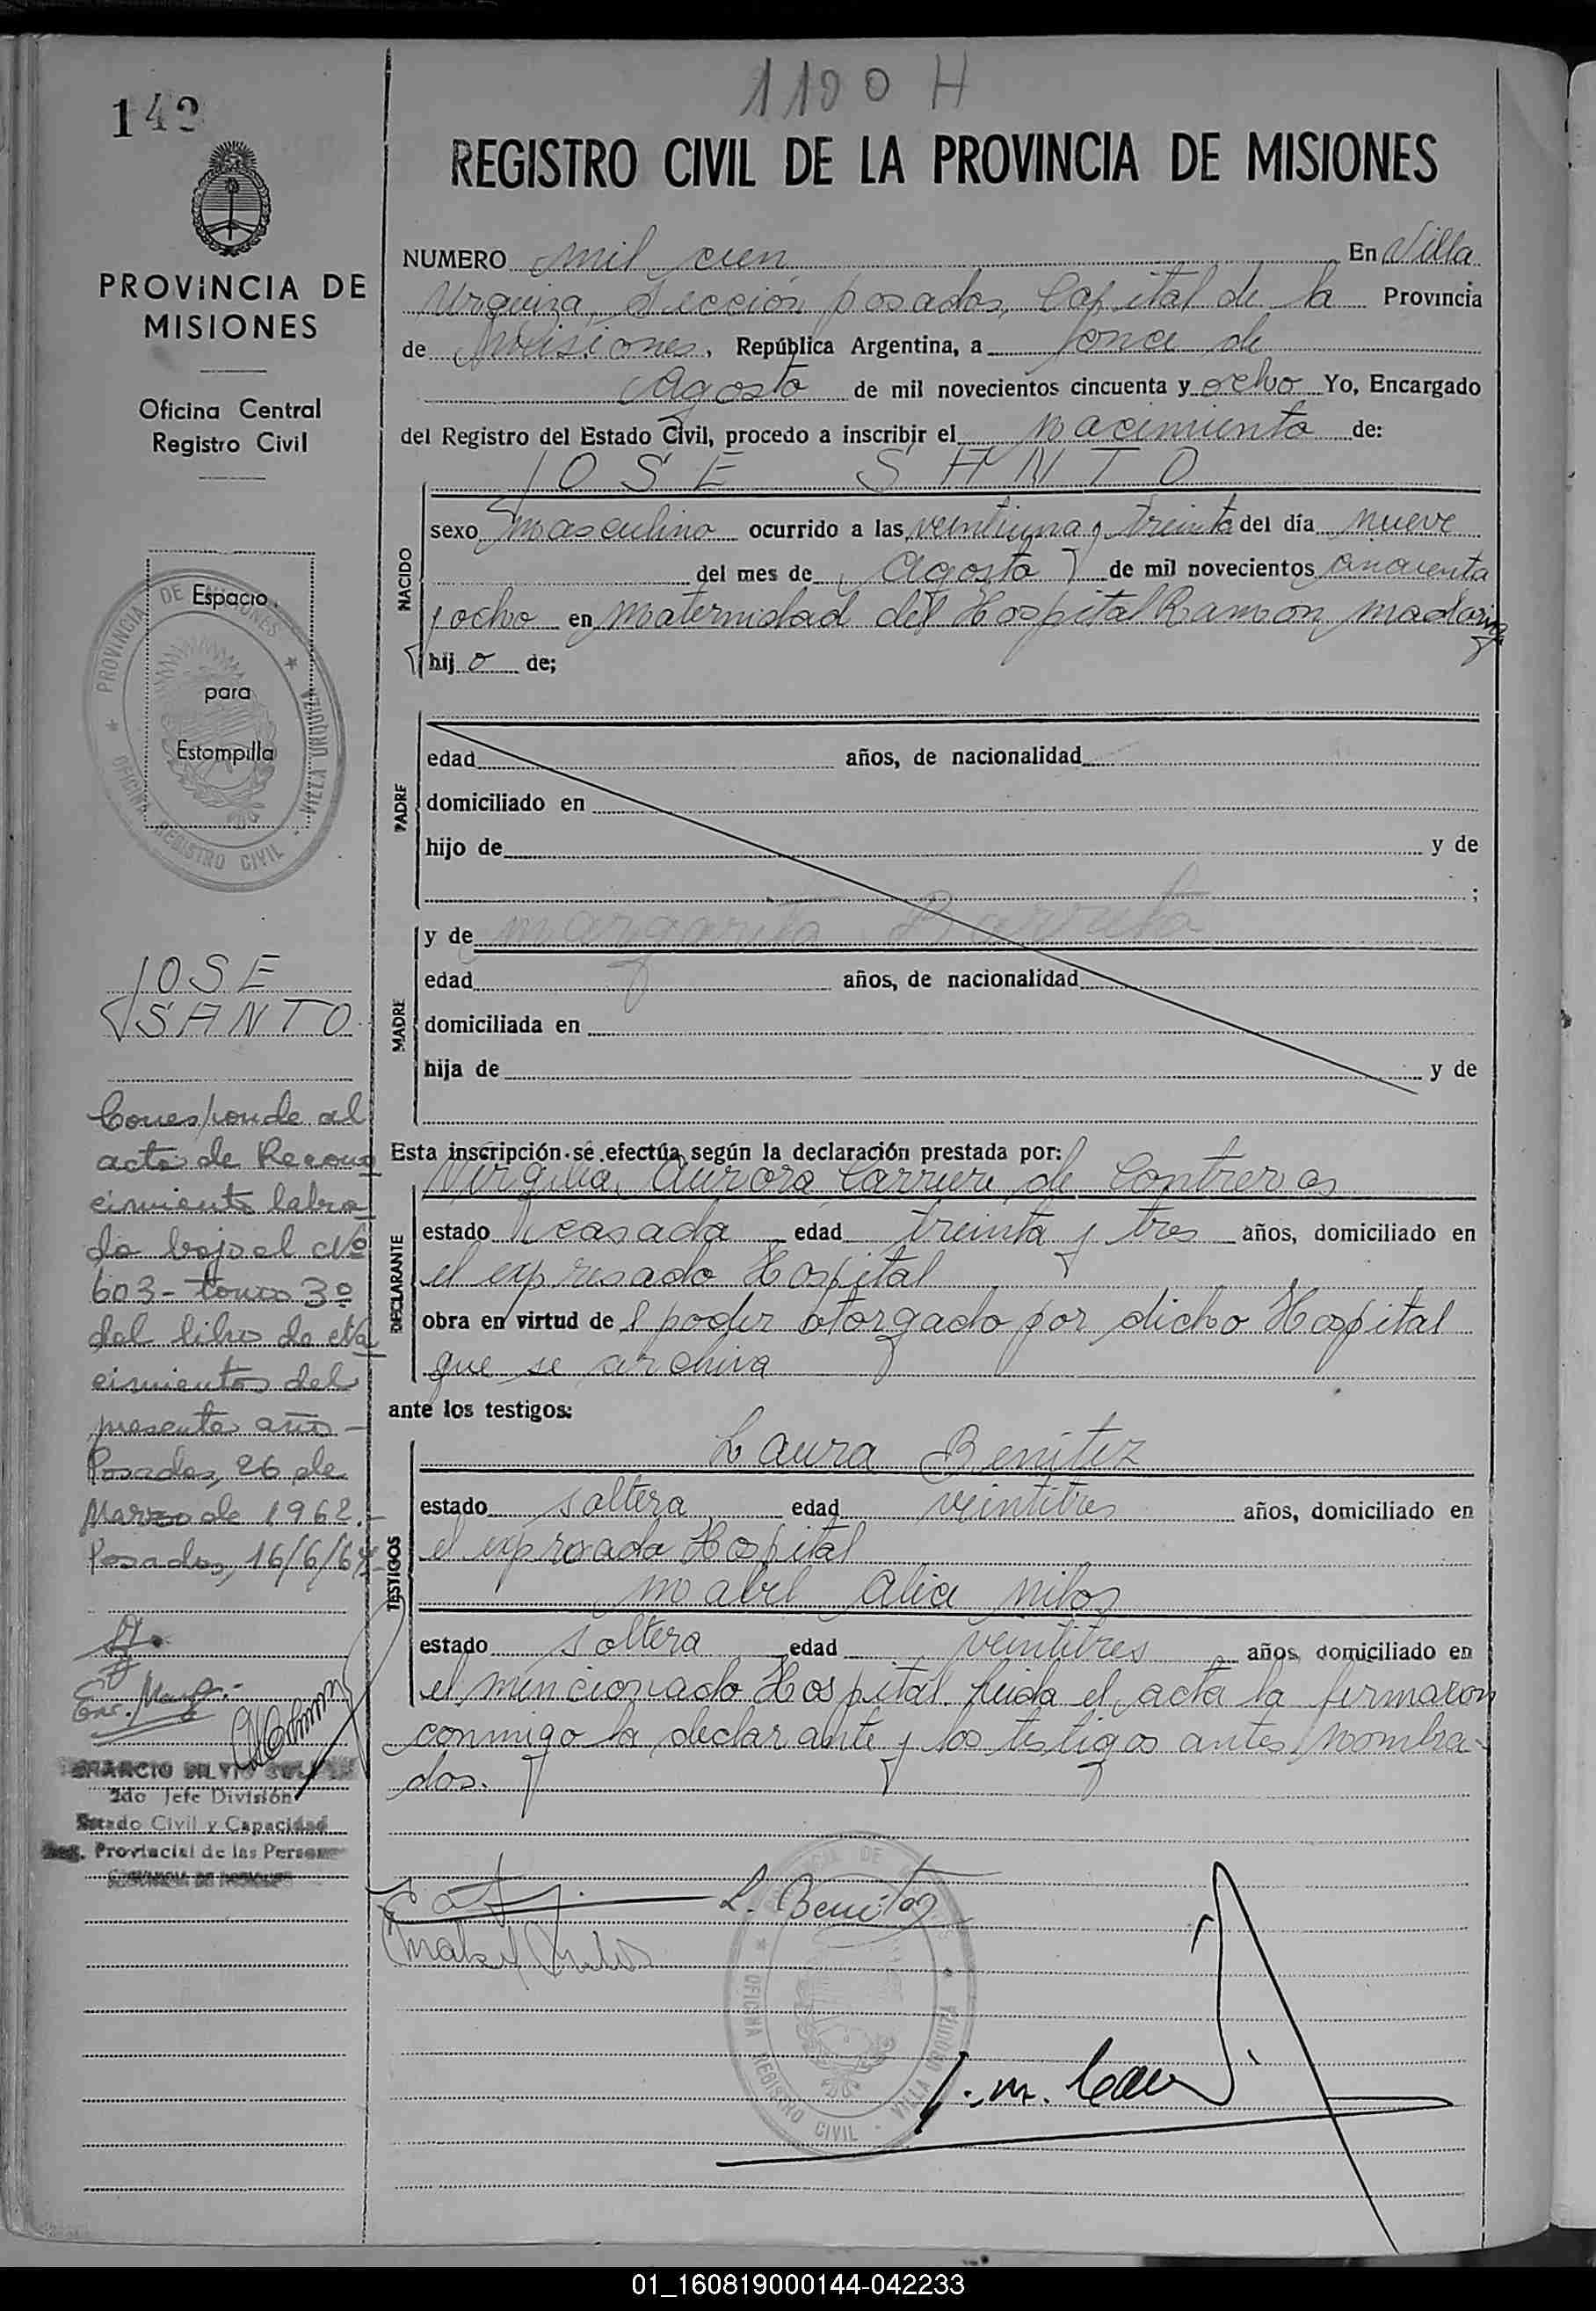 1100 H
142
REGISTRO CIVIL DE LA PROVINCIA DE MISIONES
PROVINCIA DE
MISIONES
Oficina Central
Registro Civil
NUMERO mil cien En Villa
Urquiza, Sección posadas, Capital de la Provincia
de Misiones, República Argentina, a once de
Agosto de mil novecientos cincuenta y ocho Yo, Encargado
del Registro del Estado Civil, procedo a inscribir el nacimiento de:
JOSE SANTO
NACIDO
sexo masculino ocurrido a las veintiuna y treinta del día nueve
del mes de Agosto de mil novecientos cincuenta
y ocho en Maternidad del Hospital Ramon Madariaga
hijo de;
PADRE
edad años, de nacionalidad
domiciliado en
hijo de y de
;
MADRE
y de Margarita Barreto
edad años, de nacionalidad
domiciliada en
hija de y de
Esta inscripción se efectúa según la declaración prestada por:
DECLARANTE
Virgilia Aurora Carrere de Contreras
estado casada edad treinta y tres años, domiciliado en
el expresado Hospital
obra en virtud de l poder otorgado por dicho Hospital
que se archiva
ante los testigos:
TESTIGOS
Laura Benitez
estado soltera edad veintitres años, domiciliado en
el expresado Hospital
Mabel Alice Milos
estado soltera edad veintitres años, domiciliado en
el mencionado Hospital. leida el acta la firmaron
conmigo la declarante y los testigos antes nombra-
dos.
L. Benitez
Mabel Milos
Espacio
para
Estampilla
PROVINCIA DE MISIONES
OFICINA REGISTRO CIVIL - VILLA URQUIZA
JOSE
SANTO
Corresponde al
acta de Recono
cimiento labra
da bajo el Nº
603 - tomo 3º
del libro de Na
cimientos del
presente año -
Posadas, 26 de
Marzo de 1962.-
Posadas, 16/6/64
2do Jefe División
Estado Civil y Capacidad
Reg. Provincial de las Personas
OFICINA REGISTRO CIVIL - VILLA URQUIZA
01_160819000144-042233